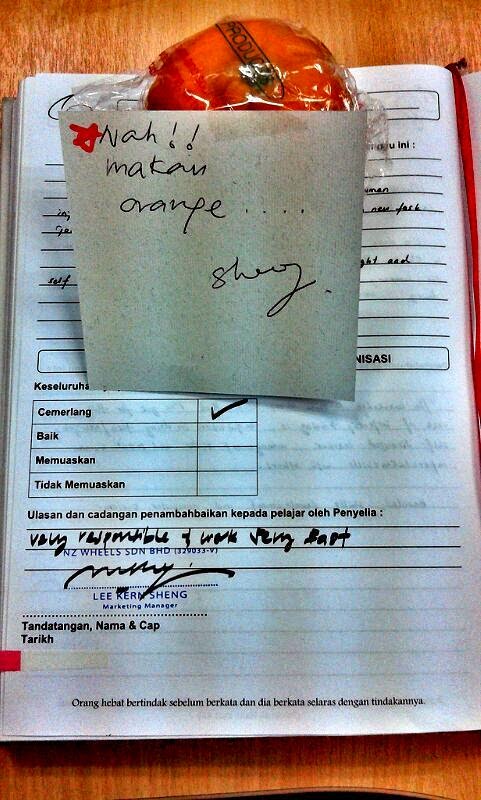 PRODUCT
Nah!!
makan
orange ....
sheng.
u ini :
new task
ght and
self
NISASI
Keseluruha
Cemerlang ✓
Baik
Memuaskan
Tidak Memuaskan
Ulasan dan cadangan penambahbaikan kepada pelajar oleh Penyelia :
very responsible & work very fast
NZ WHEELS SDN BHD (329033-V)
LEE KERN SHENG
Marketing Manager
Tandatangan, Nama & Cap
Tarikh
Orang hebat bertindak sebelum berkata dan dia berkata selaras dengan tindakannya.